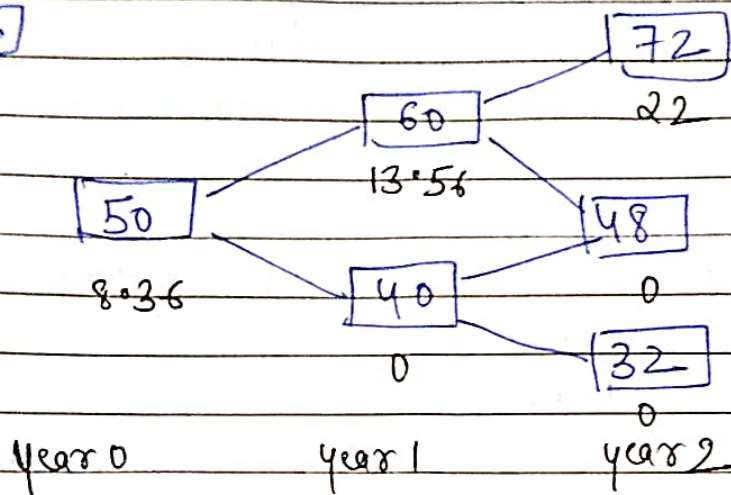 72
22
60
13.56
50
48
8.36
40
0
0
32
0
year 0 year 1 year 2